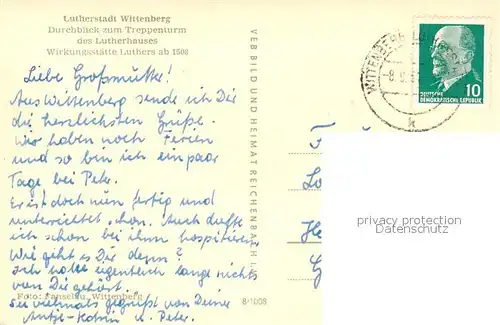 Lutherstadt Wittenberg
Durchblick zum Treppenturm
des Lutherhauses
Wirkungsstätte Luthers ab 1508
Liebe Großmutter!
Aus Wittenberg sende ich Dir
die herzlichsten Grüße.
Wir haben noch Ferien
und so bin ich ein paar
Tage bei Peter.
Er ist doch nun fertig und
unterrichtet schon. Auch durfte
ich schon bei ihm hospitieren.
Wie geht es Dir denn?
Ich habe eigentlich lange nichts
von Dir gehört.
Foto: Janselau, Wittenberg
Sei vielmals gegrüßt von Deiner
Antje-Katrin u. Peter.
8·1008
VEB BILD UND HEIMAT REICHENBACH I.
WITTENBERG LU
8.9.
k
10
DEUTSCHE
DEMOKRATISCHE REPUBLIK
privacy protection
Datenschutz